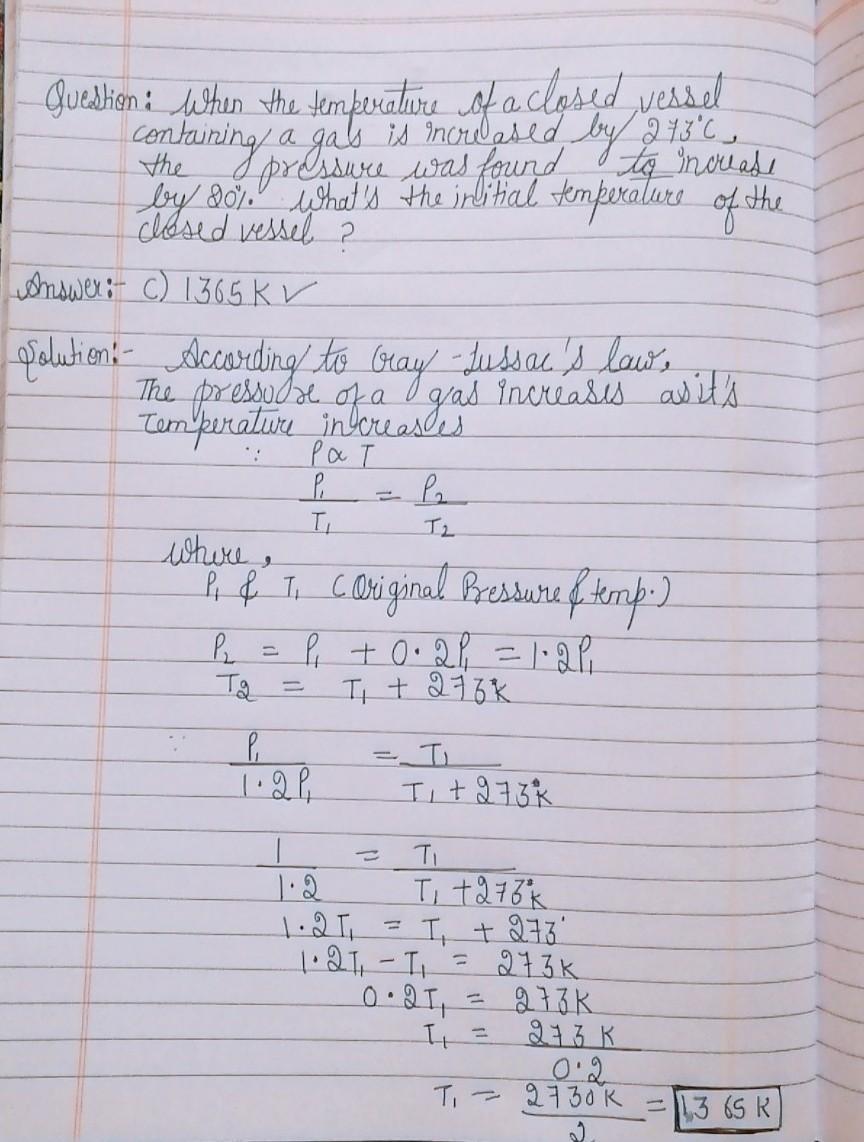 Question: When the temperature of a closed vessel
containing a gas is increased by 273°C,
the pressure was found to increase
by 20%. What's the initial temperature of the
closed vessel ?
Answer:- C) 1365 K ✓
Solution:- According to Gray-Lussac's law,
The pressure of a gas increases as it's
Temperature increases
∵ P ∝ T
P₁/T₁ = P₂/T₂
where,
P₁ & T₁ (Original Pressure & temp.)
P₂ = P₁ + 0.2P₁ = 1.2P₁
T₂ = T₁ + 273°K
∵ P₁/1.2P₁ = T₁/T₁ + 273°K
1/1.2 = T₁/T₁ + 273°K
1.2T₁ = T₁ + 273°
1.2T₁ - T₁ = 273K
0.2T₁ = 273K
T₁ = 273 K/0.2
T₁ = 2730K/2 = 1365 K